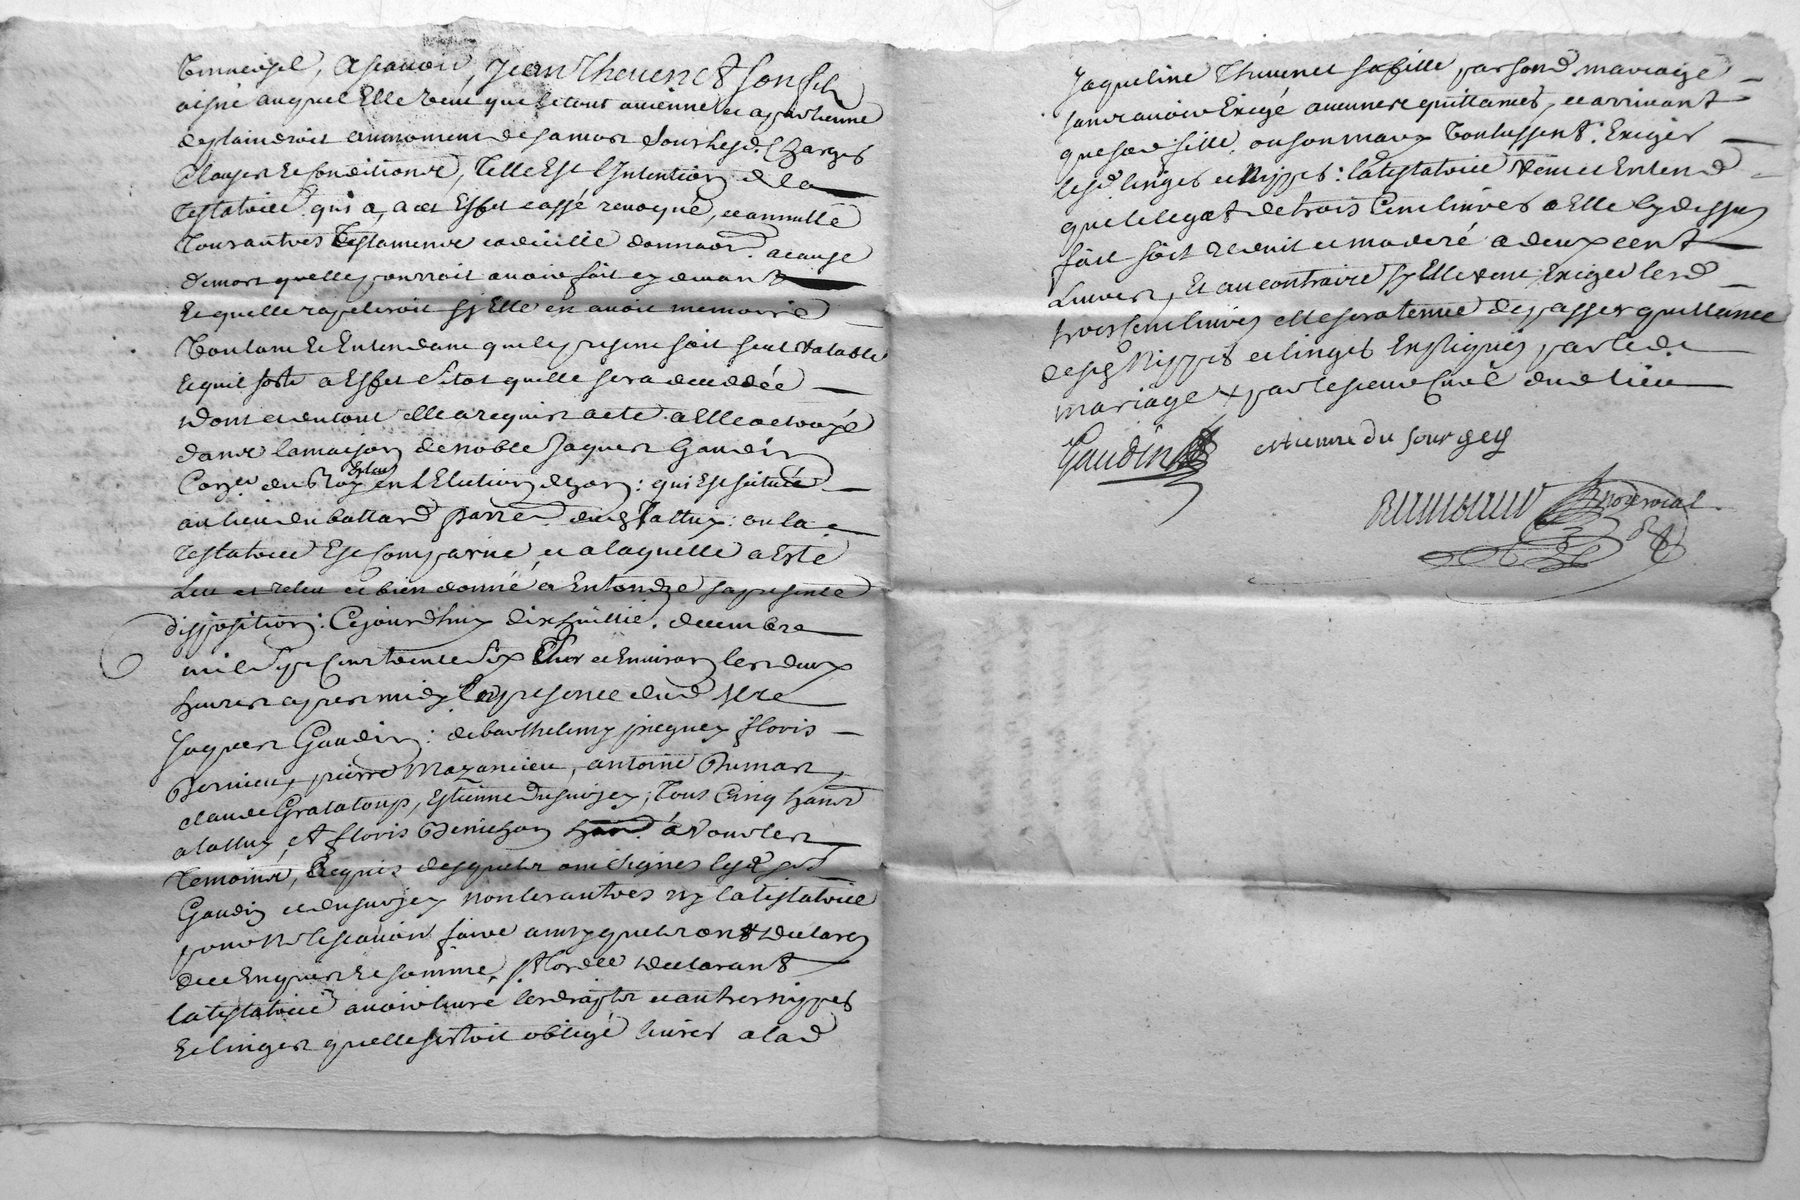 universel, a scavoir, Jean Thevenet son fils
aisné auquel Elle veut que le tout avienne et apartienne
de plain droit au moment de sa mort sous lesd. Charges
Clauses et conditions, Telle Est l'Intention de la
Testatrice qui a, a cet Effet cassé revoqué, et annullé
Tous autres Testaments codicille donnaon. a cause
de mort quelle pourroit avoir fait cy devant
Et quelle rapeleroit sy Elle en avoit memoire
Voulant Et Entendant que le present soit seul valable
Et quil sorte a Effet sitot quelle sera decedée
Dont et du tout elle a requis acte a Elle octroyé
dans la maison de noble Jaques Gaudin
Consr. du Roy Esleu en L'Election de
au lieu du batard parr. dud. Tallux: ou la
Testatrice Est Comparue, et a laquelle a Esté
Leu et releu et bien donné a Entendre sa presente
disposition: Cejourdhuy dix huitie. decembre
mil sept cent trente six et Environ les deux
heures apres midy En presence dud. Sr.
Jaques Gaudin: de barthelemy floris
pierre Mazancieu, antoine
claude Grataloup, Estienne Dusurgey, Tous Cinq habts
a tallux, et floris Denichon habt. a Vourles
Temoins, Requis desquels ont signés lesd. srs.
Gaudin et dusurgey non les autres ny la testatrice
pour ne le scavoir faire ainsy quels ont declaré
de ce Enquis Et sommé, declarant
la testatrice avoir livré les draps et autres nippes
Et linges quelle sestoit obligé livrer a lad
Jaqueline Thevenet sa fille par son d. mariage
sans avoir Exigé aucunes quittances, et arrivant
que sad. fille, ou son mary Voulussent Exiger
lesd. linges et Nippes: la testatrice veut et Entend
que le legat de trois Cent livres a Elle cy dessus
fait soit reduit et moderé a deux cent
Livres, Et au contraire sy Elle veut Exiger lesd
trois Cent livres elle sera tenue de passer quittance
desd. Nippes et linges Expliqués par led.
mariage & par le sieur Curé dud. lieu
Gaudin estienne du sourgey